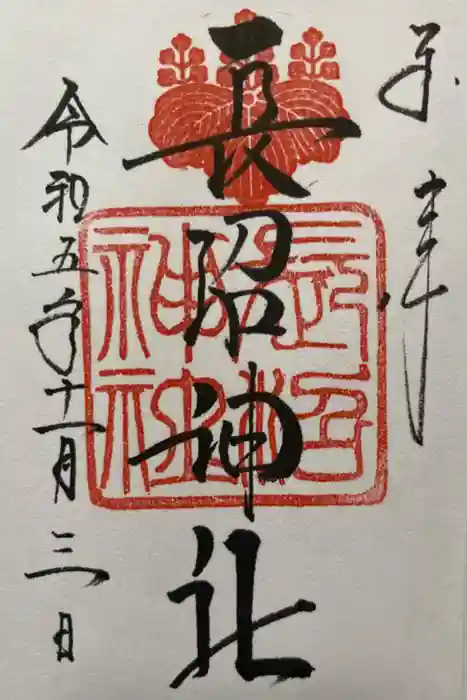 奉拝
長沼神社
長沼神社
令和五年十一月三日